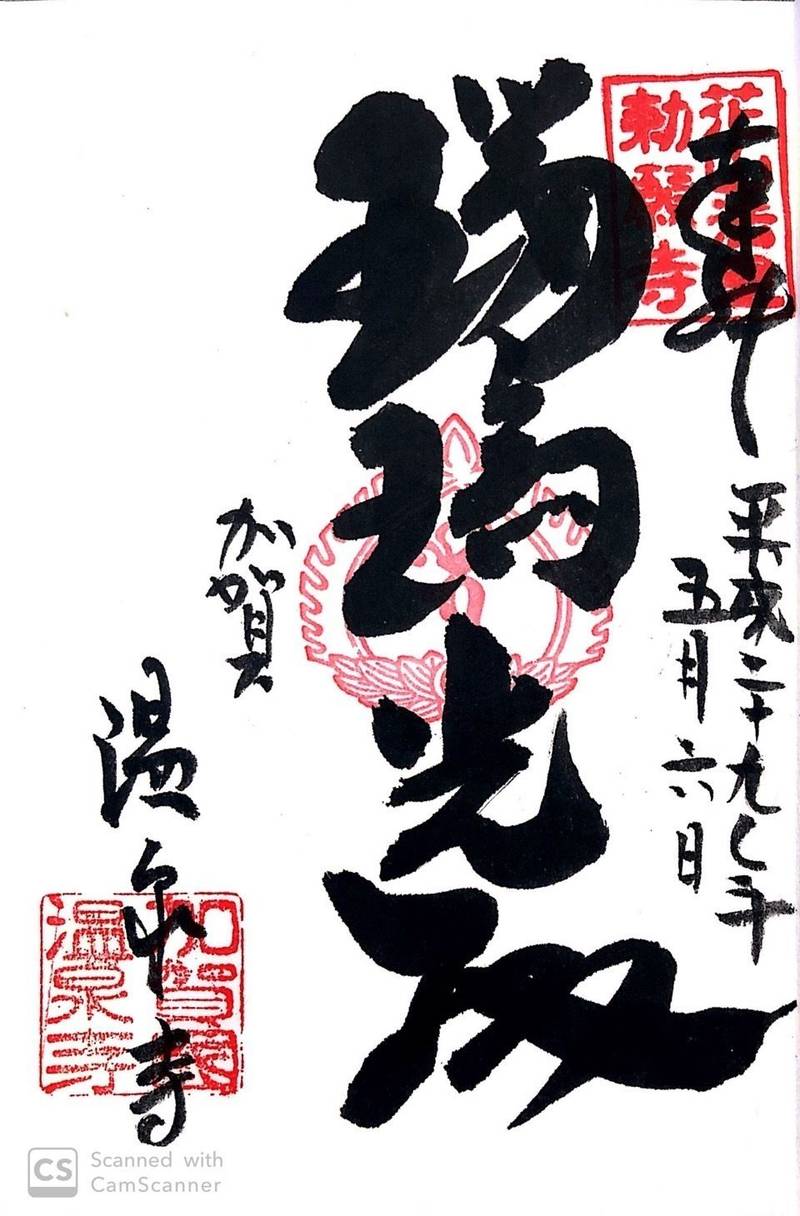 奉拝
平成二十九年
五月六日
瑠璃光殿
加賀
温泉寺
花山法皇
勅願寺
加賀國
温泉寺
CS Scanned with
CamScanner